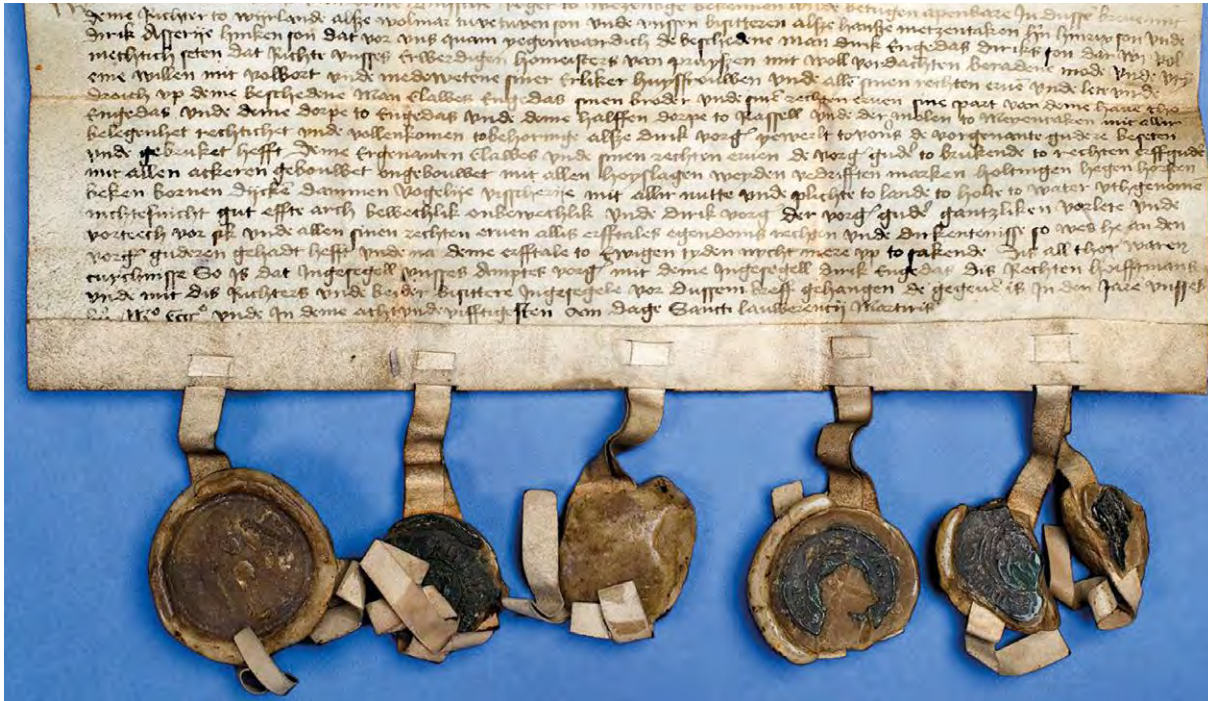 deme Richter to wyrlande alse wolmar tuve tuven son unde unsen bisitteren alse hanse metzentaken hin hinrik son unde
dirik Asserije hinken son dat vor uns quam yegenwardich de beschedene man dirik Engedas diriks son dar wi vol
mechtich seten dat Richte unses Erwerdigen homeisters van prutzen mit woll vordachten beradene mode unde vry
eme willen mit volbort unde medewetene siner Erliker huysfrouwen unde alle sinen rechten erve unde lete unde
droich up deme beschedene Man Clawes Engedas sinen broder unde sine rechten erven sine part van deme have tho
Engedas unde deme dorpe to Engedas unde deme halffen dorpe to Kassell unde der molen to mit aller
belegenhet rechticheit unde vollenkomen tobehoringe alse dirik vorg yewerlt tovons de vorgenante gudere beseten
unde gebruket hefft Deme Ergenanten Clawes unde sinen rechten erven de vorg gude to brukende to rechten erffgude
mit allen ackeren gebouwet ongebouwet mit allen hoyslagen weyden vedrifften marken holtingen hegen horsten
beken bornen dijcke dammen vogelije visscherije mit aller nutte unde plichte to lande to holte to water uthgenome
nichtesnicht gut effte arch bewechlik onbewechlik unde dirik vorg der vorg gude gantzliken vorlete unde
vorteech vor sik unde allen sinen rechten erven alles erfftales egendoms rechten unde dirkentenisse so wes he an den
vorg guderen gehadt hefft unde na deme erfftale to Ewigen tyden nycht mere up to sakende Dit all thor waren
tuchnisse So is dat Ingesegell unses Amptes vorg mit deme Ingesegell dirik Engedas dis Rechten hoifftmans
unde mit dis Richters unde beider bisittere Ingesegele vor dussem breff gehangen de gegeve is In den Jare unses
unde In deme achtundevifftigesten Am dage Sancti lauwerencij Martiris